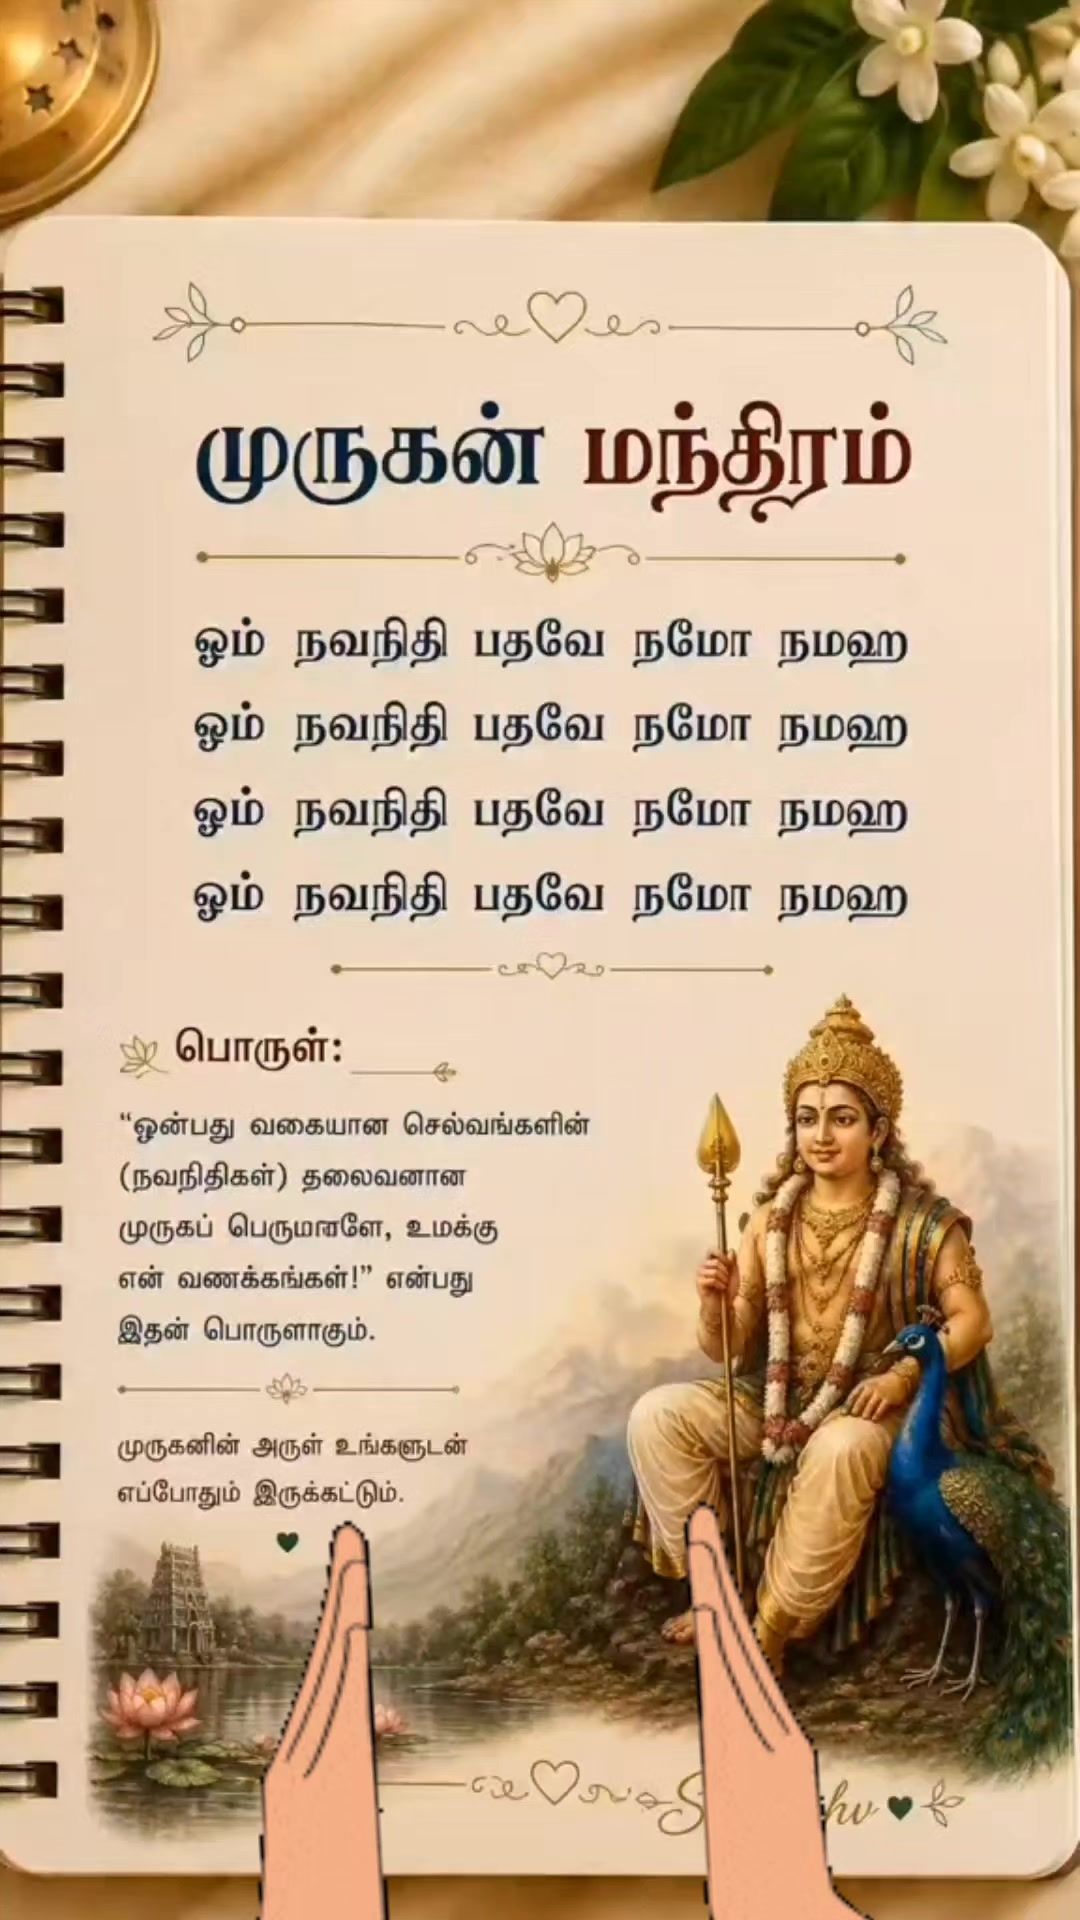 முருகன் மந்திரம்
ஓம் நவநிதி பதவே நமோ நமஹ
ஓம் நவநிதி பதவே நமோ நமஹ
ஓம் நவநிதி பதவே நமோ நமஹ
ஓம் நவநிதி பதவே நமோ நமஹ
பொருள்:
“ஒன்பது வகையான செல்வங்களின்
(நவநிதிகள்) தலைவனான
முருகப் பெருமானே, உமக்கு
என் வணக்கங்கள்!” என்பது
இதன் பொருளாகும்.
முருகனின் அருள் உங்களுடன்
எப்போதும் இருக்கட்டும்.